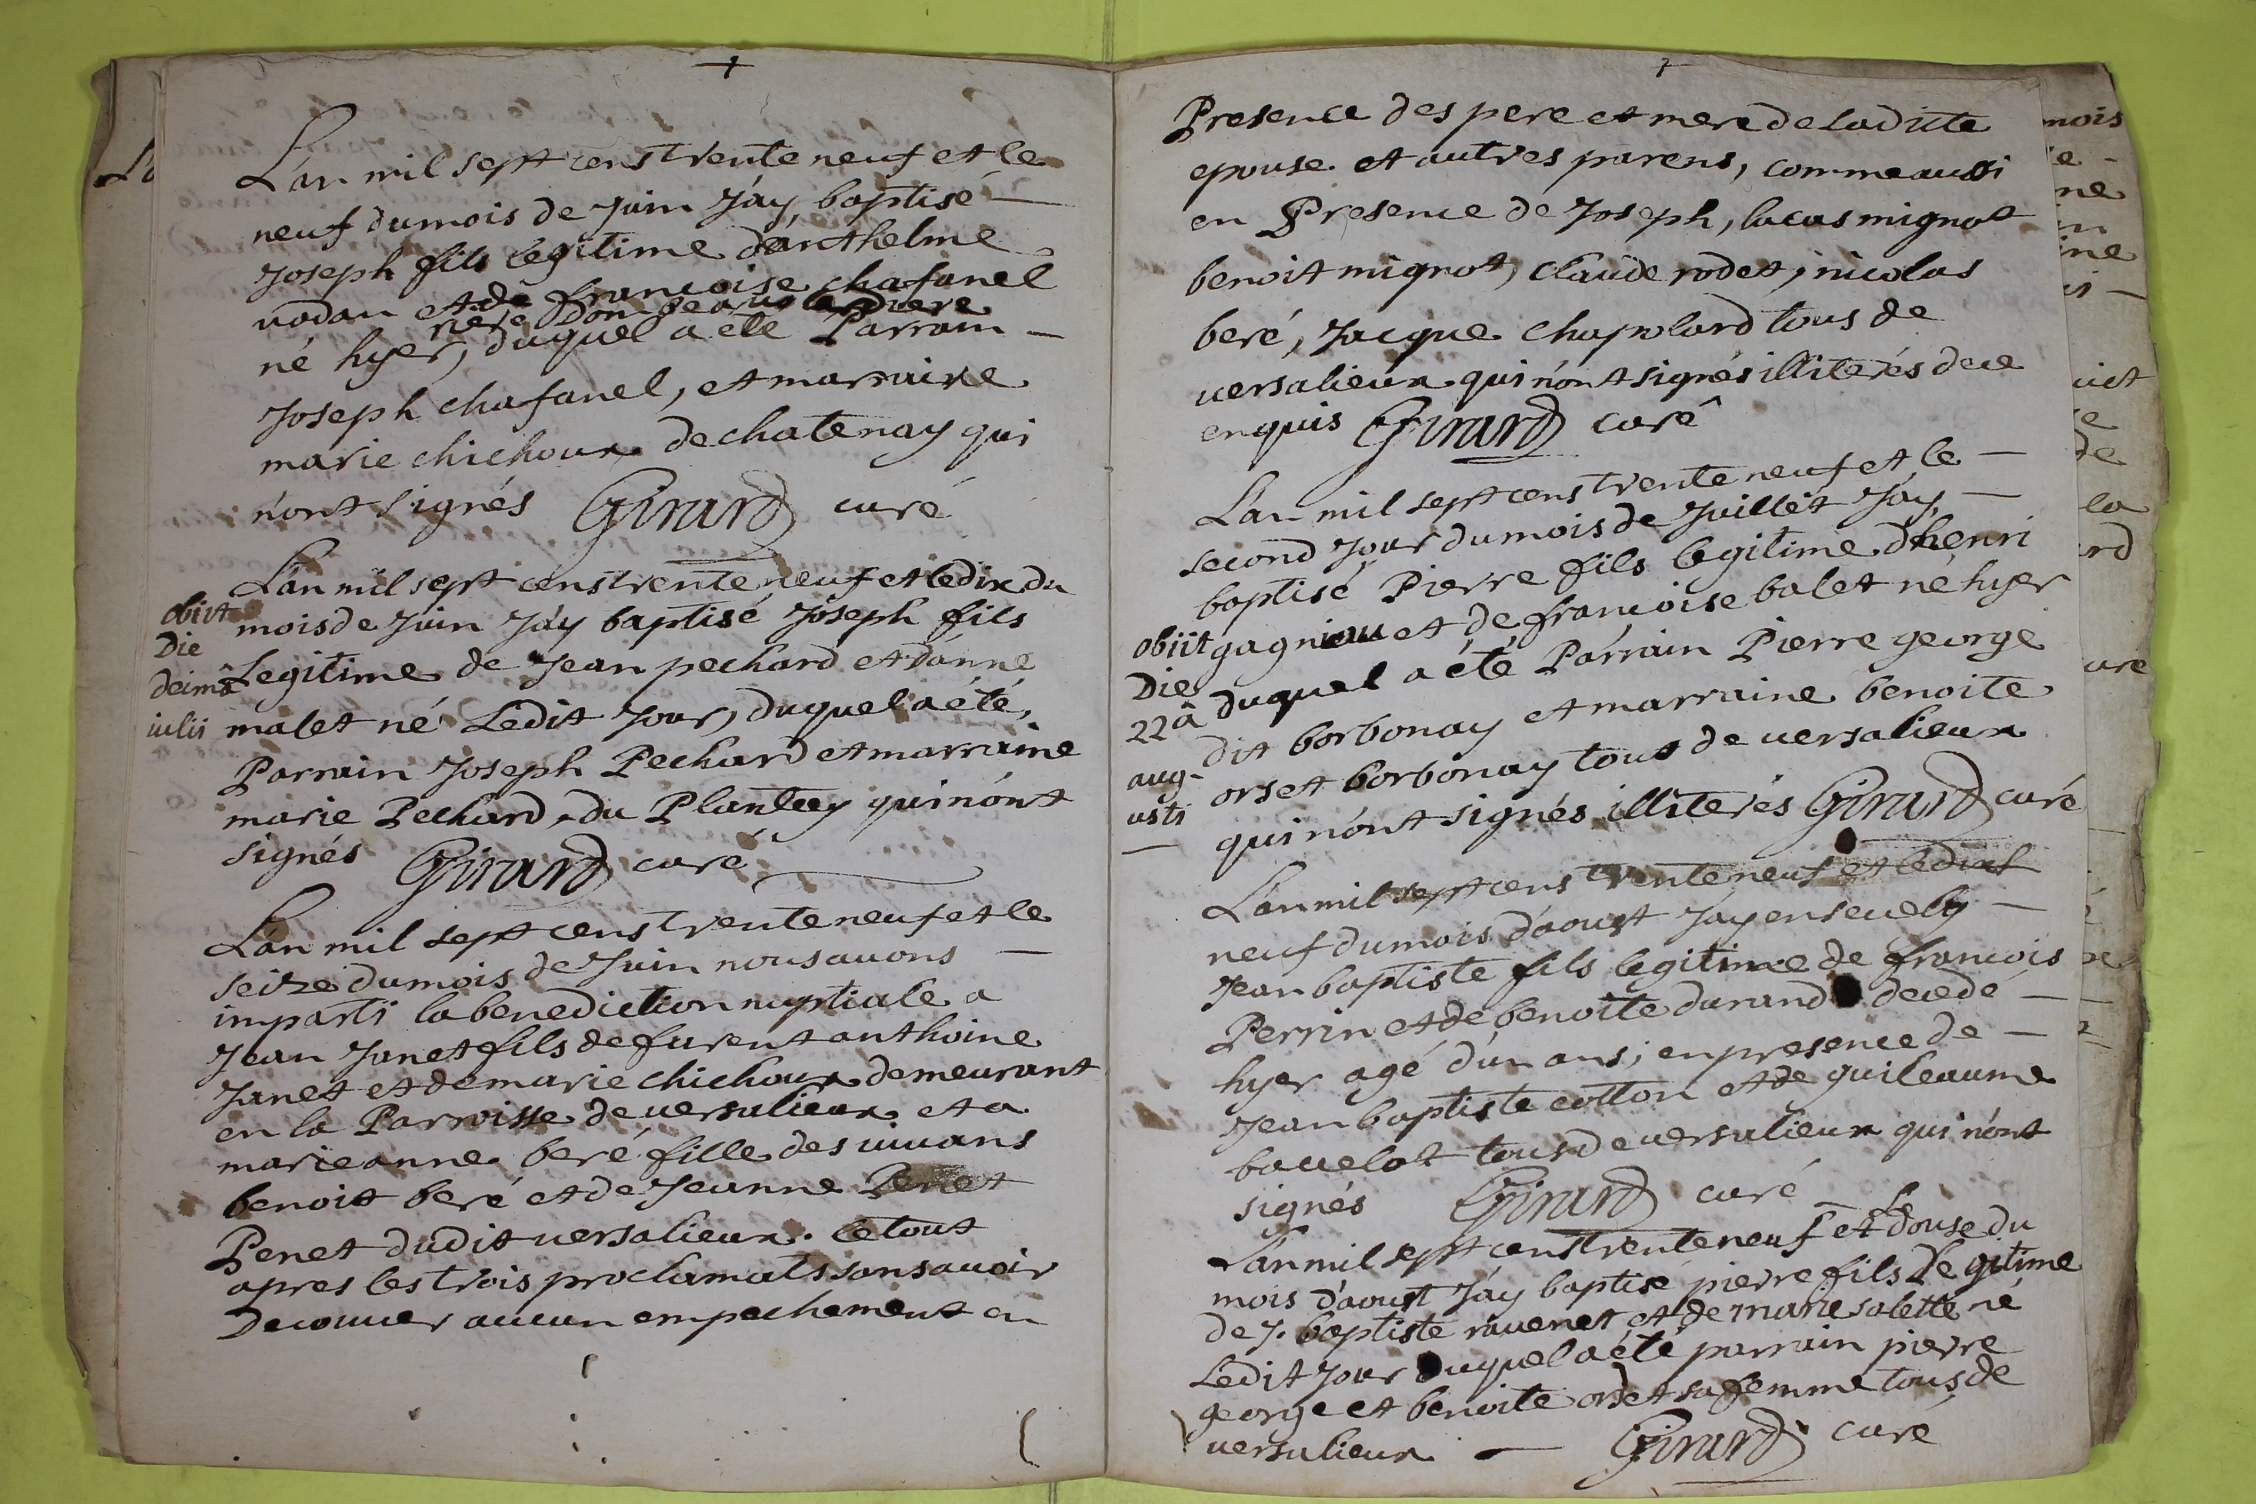 L'an mil sept cens trente neuf et le
neuf du mois de Juin J'ay baptisé
Joseph fils legitime d'anthelme
vodan et de francoise chafanel
né hyer, duquel a eté Parrain
Joseph chafanel, et marraine
marie chichoux de chatenay qui
n'ont signés Girard curé
L'an mil sept cens trente neuf et le dix du
mois de Juin J'ay baptisé Joseph fils
Legitime de Jean pechard et d'anne
malet né Ledit Jour, duquel a été
Parrain Joseph Pechard et marraine
marie Pechard du Plantey qui n'ont
signés Girard curé
obiit
Die
deimâ
iulii
L'an mil sept cens trente neuf et le
seize du mois de Juin nous avons
imparti la benediction nuptiale a
Jean Janet fils de furent anthoine
Janet et de marie chichoux demeurant
en la Parroisse de versalieux et a
marie anne beré fille des vivans
benoit beré et de Jeanne Penet
Penet dudit versalieux. le tout
apres les trois proclamats sans avoir
Decouver aucun empechement en
Presence des pere et mere de La ditte
epouse et autres parens, comme aussi
en Presence de Joseph, lucas mignot
benoit mignot, claude rodet, nicolas
beré, Jacque chapolard tous de
versalieux qui n'ont signés illiterés de ce
enquis Girard curé
L'an mil sept cens trente neuf et le
second Jour du mois de Juillet J'ay
baptisé Pierre fils legitime d'henri
gagniau et de francoise balet né hyer
duquel a été Parrain Pierre george
dit borbonay et marraine benoite
orset borbonay tous de versalieux
qui n'ont signés illiterés Girard curé
obiit
Die
22â
aug-
usti
L'an mil sept cens trente neuf et le dixl
neuf du mois d'aoust J'ay ensevely
Jean baptiste fils legitime de francois
Perrin et de benoite durand decedé
hyer agé d'un ans; en presence de
Jean baptiste cotton et de guileaume
bavelot tous de versalieux qui n'ont
signés Girard curé
L'an mil sept cens trente neuf et Le douse du
mois d'aoust J'ay baptisé pierre fils Legitime
de J. baptiste ravenet et de marie salette né
Ledit Jour Duquel a été parrain pierre
george et benoite orset sa femme tous de
versalieux Girard curé